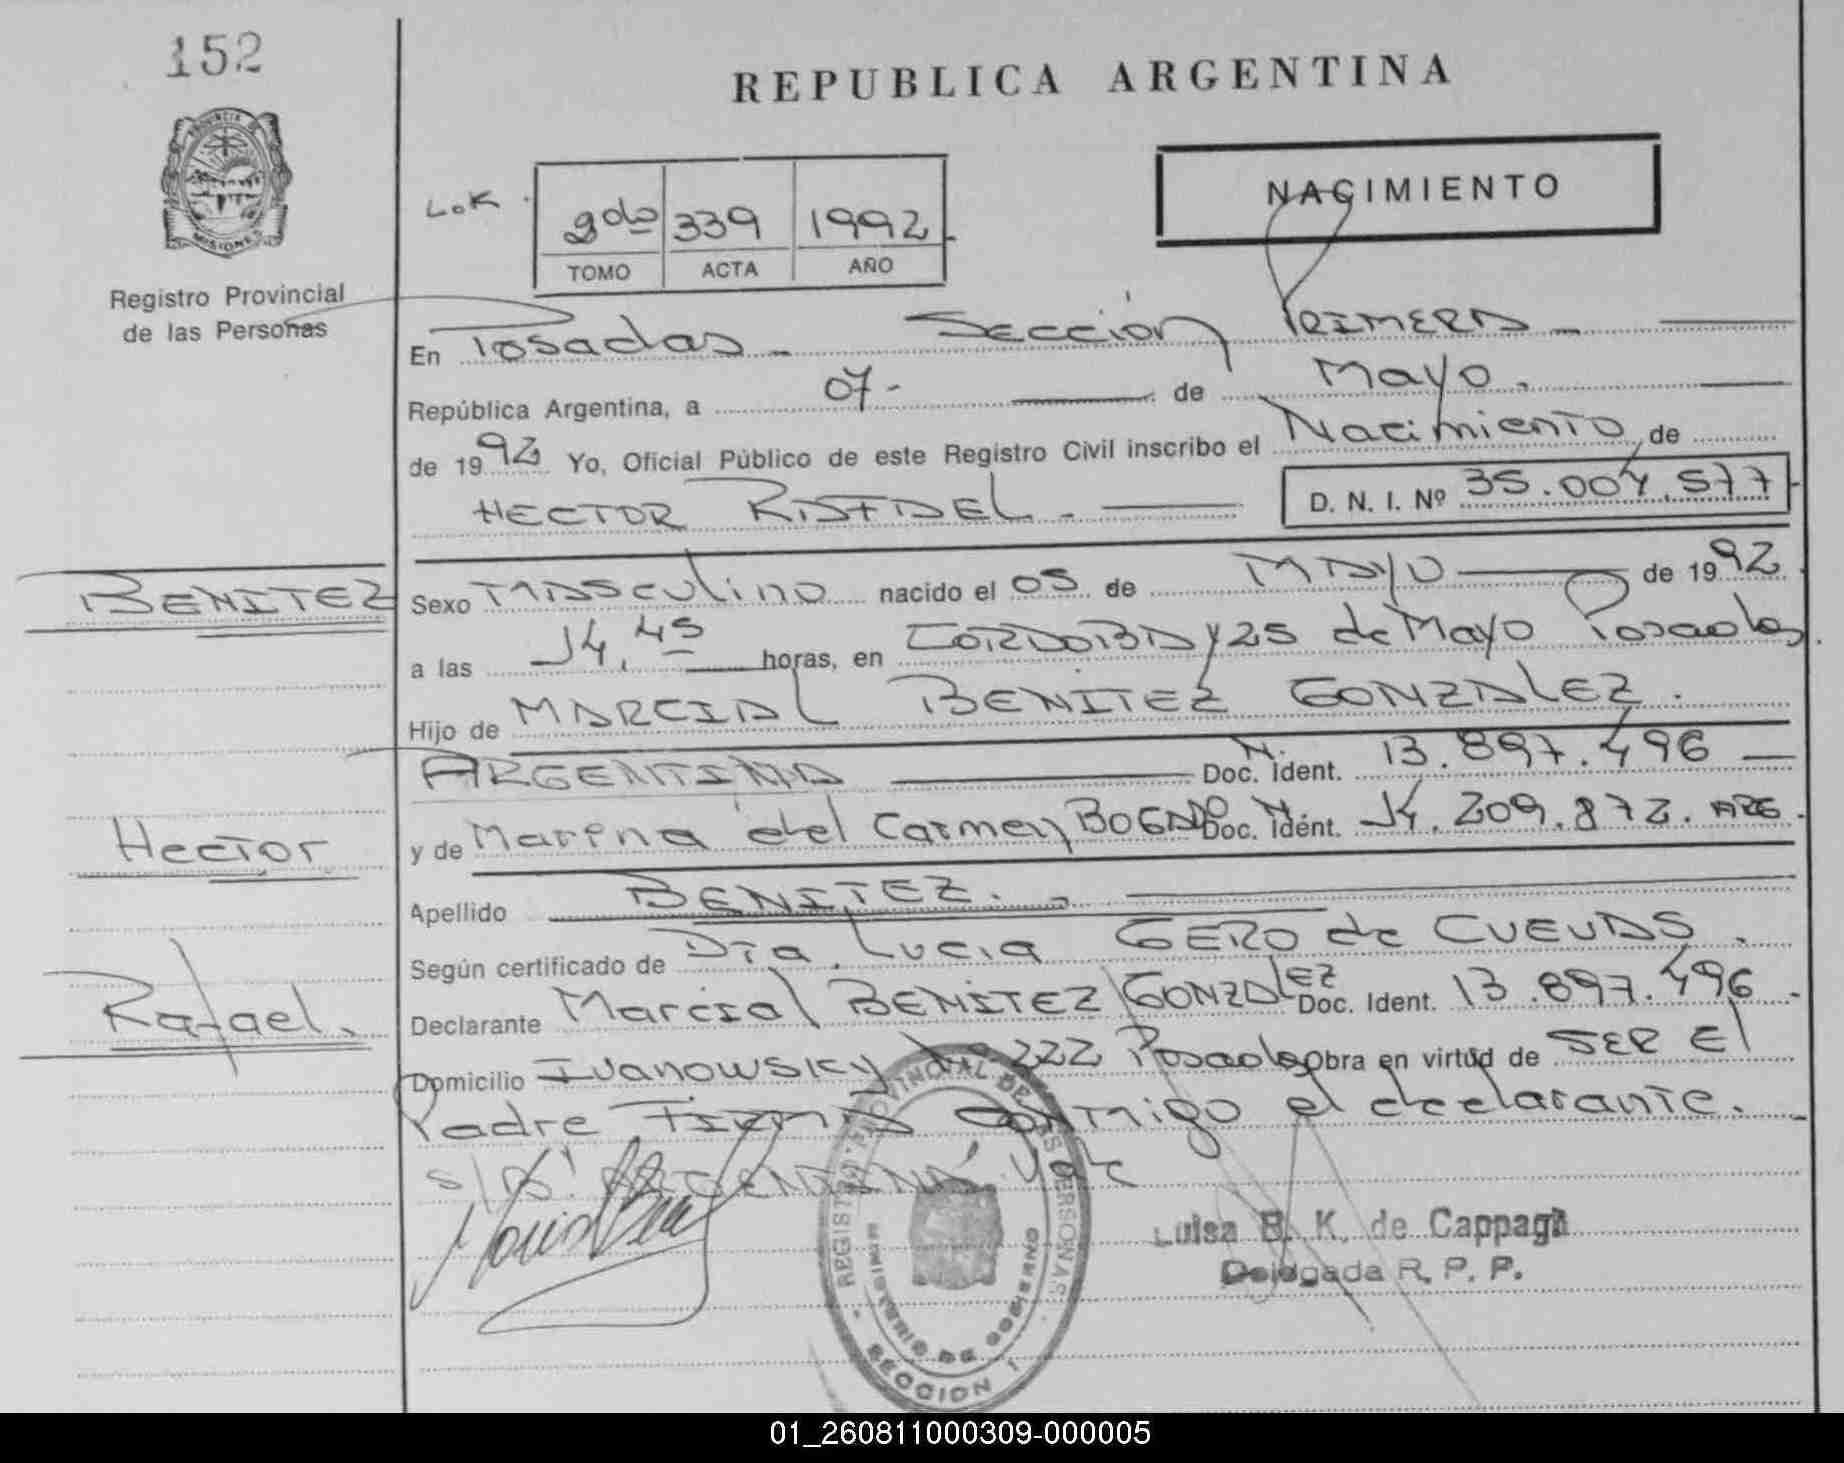 152
REPUBLICA ARGENTINA
PROVINCIA DE
MISIONES
Registro Provincial
de las Personas
NACIMIENTO
LOK
2do 339 1992
TOMO ACTA AÑO
En Posadas - Sección PRIMERA -
República Argentina, a 07- de Mayo.
de 1992 Yo, Oficial Público de este Registro Civil inscribo el Nacimiento de
HECTOR RAFAEL - D. N. I. Nº 35.004.577
BENITEZ
Sexo MAsculino nacido el 05 de MAYO de 1992.
a las 14,45 horas, en CORDOBA y 25 de Mayo Posadas.
Hijo de MARCIAL BENITEZ GONZALEZ.
ARGENTINA Doc. Ident. N. 13.897.496
Hector
y de Marina del Carmen BOGADO Doc. Ident. N. 14.209.872. ARG.
Apellido BENITEZ.
Según certificado de Dra. Lucia GERO de CUEVAS.
Rafael.
Declarante Marcial BENITEZ GONZALEZ Doc. Ident. 13.897.496.
Domicilio Ivanowsky Nº 222 Posadas Obra en virtud de SER El
Padre Firma conmigo el declarante.
s/R: ARGENTINA Vale
REGISTRO PROVINCIAL DE LAS PERSONAS
MINISTERIO DE GOBIERNO
SECCION 1
Luisa B. K. de Cappagli
Delegada R. P. P.
01_260811000309-000005